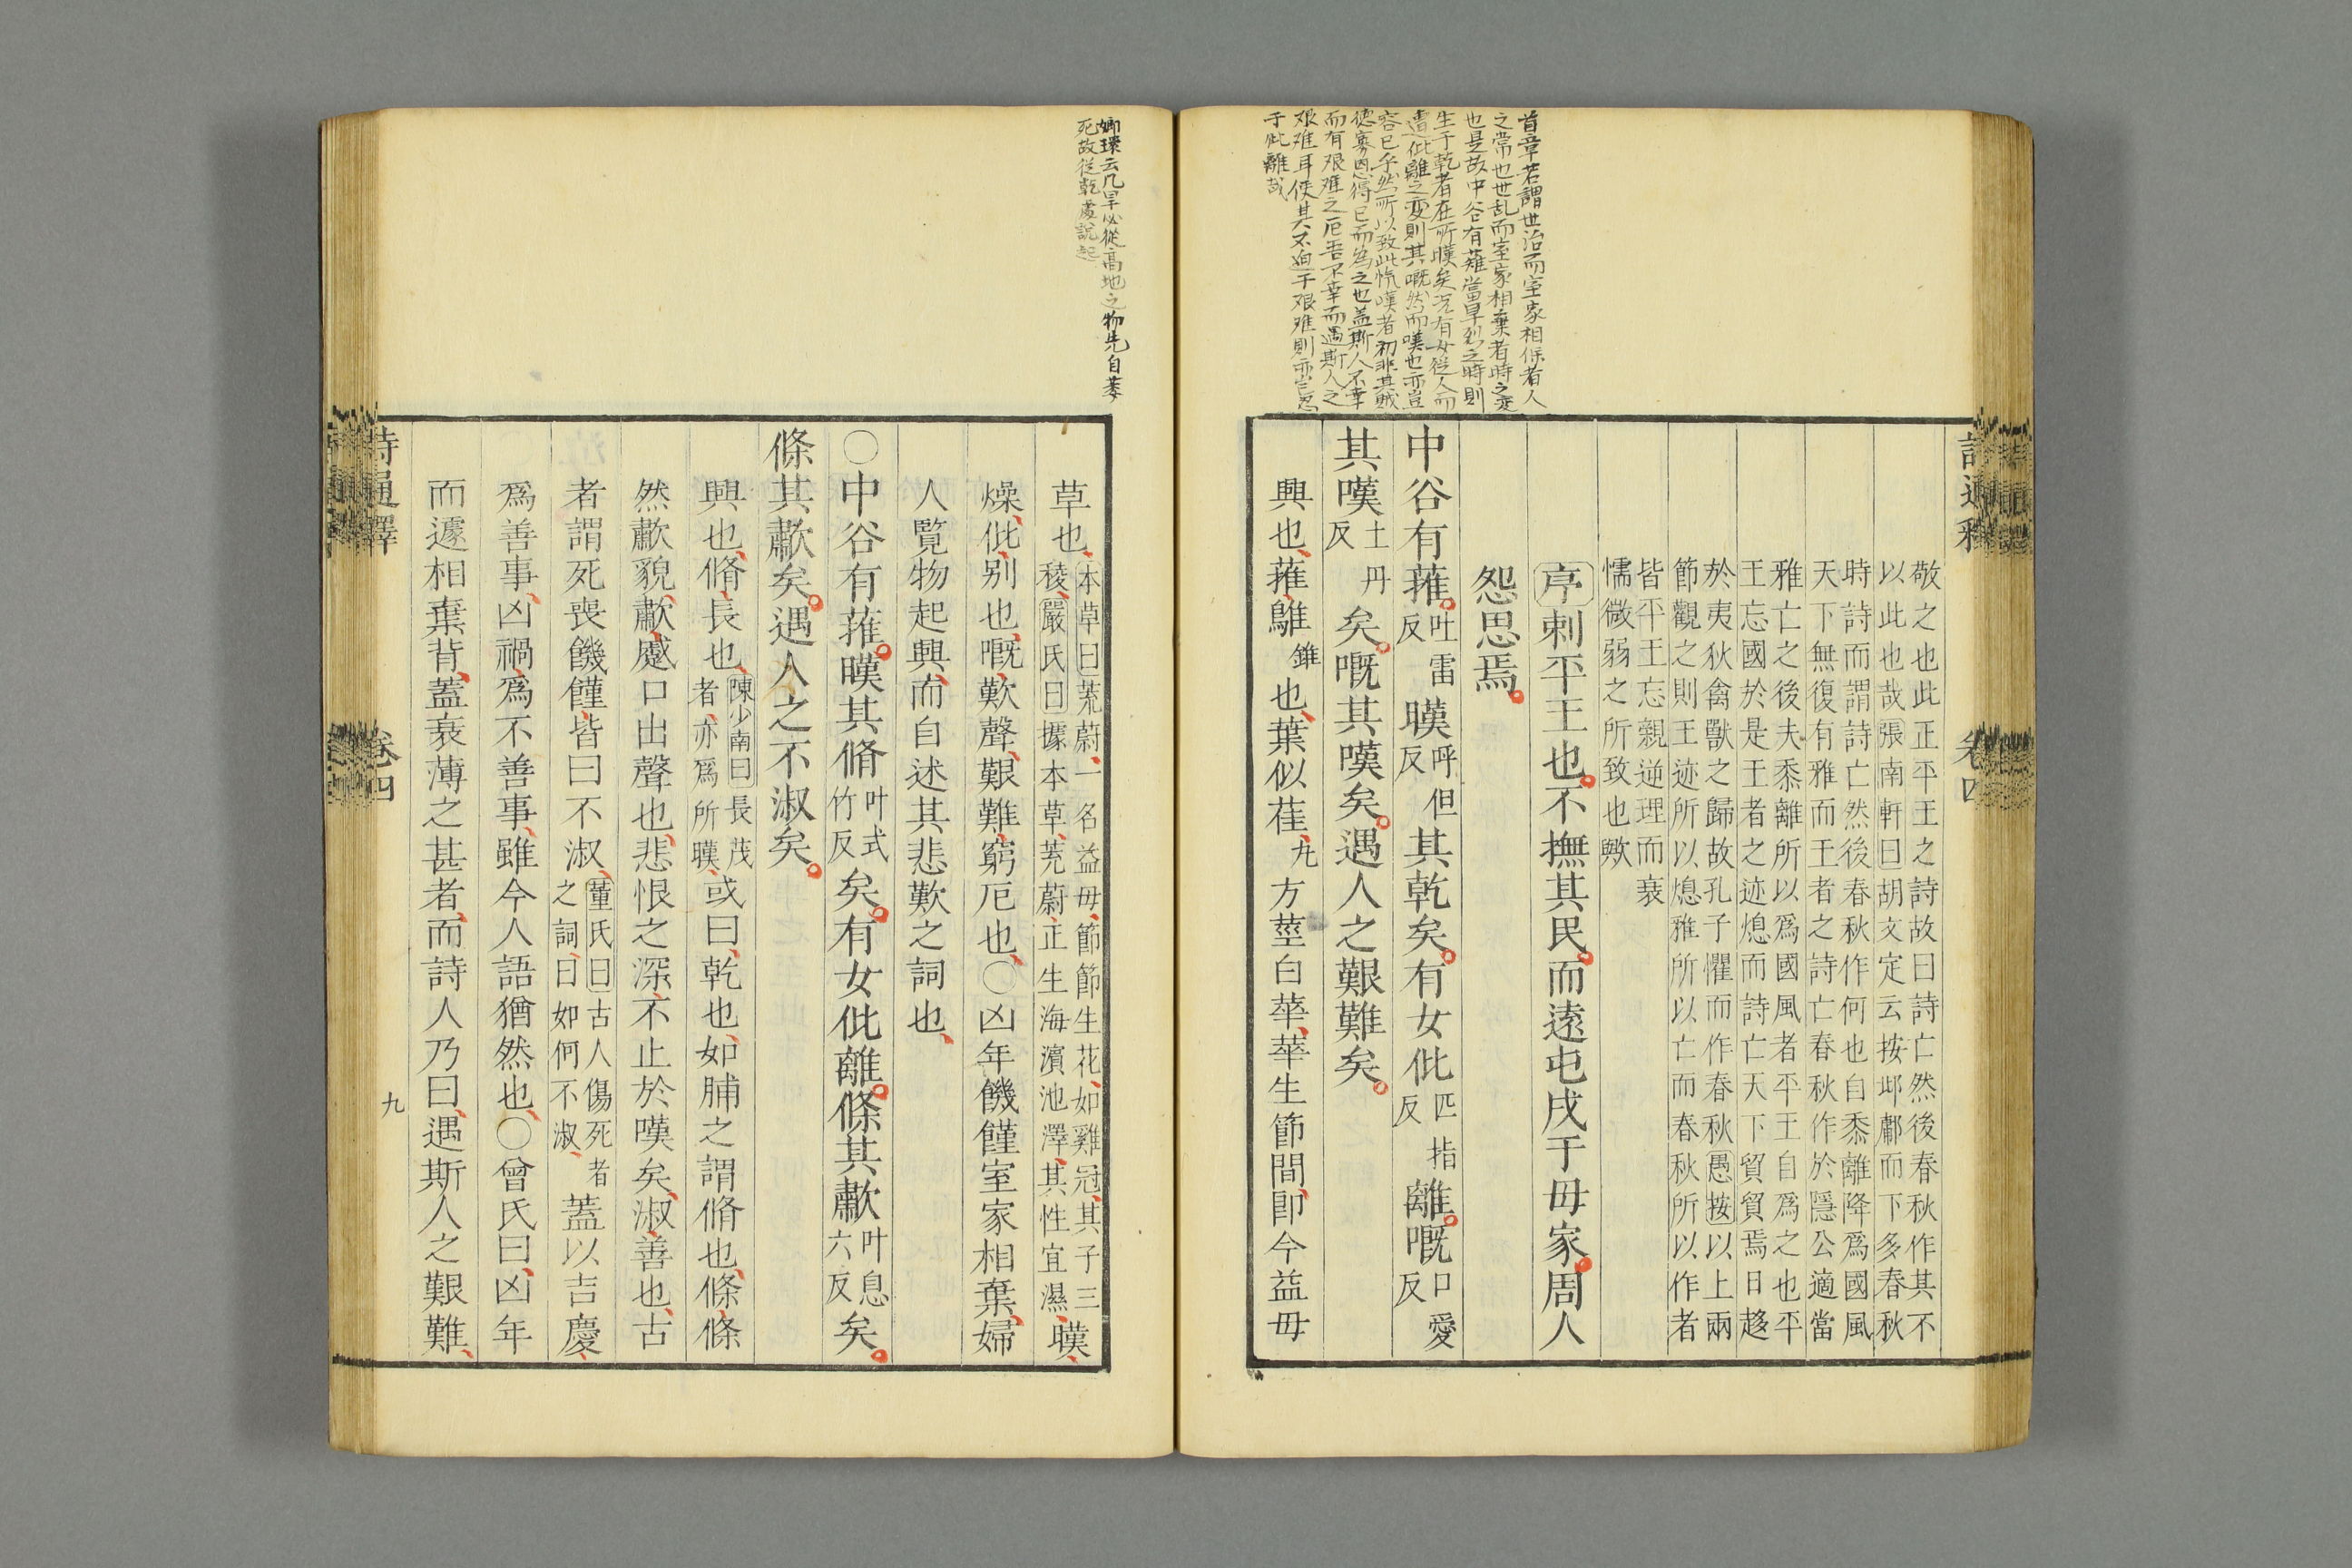 首章若謂世治而室家相保者人
之常也世乱而室家相棄者時之变
也是故中谷有蓷當旱烈之時則
生于乾者在所暵矣况有女從人而
遭仳離之变則其嘅然而嘆也亦豈
容已乎然所以致此慨嘆者初非其賊
德寡恩得已而為之也盖斯人不幸
而有艰难之厄吾不幸而遇斯人之
艰难耳使其不迫于艰难則亦豈忍
于仳離哉
敬之也此正平王之詩故曰詩亡然後春秋作其不
以此也哉張南軒曰胡文定云按邶鄘而下多春秋
時詩而謂詩亡然後春秋作何也自黍離降爲國風
天下無復有雅而王者之詩亡春秋作於隱公適當
雅亡之後夫黍離所以爲國風者平王自爲之也平
王忘國於是王者之迹熄而詩亡天下貿貿焉日趍
於夷狄禽獸之歸故孔子懼而作春秋愚按以上兩
節觀之則王迹所以熄雅所以亡而春秋所以作者
皆平王忘親逆理而衰
懦微弱之所致也歟
序刺平王也不撫其民而遠屯戍于毋家周人
怨思焉
中谷有蓷吐雷反暵呼但反其乾矣有女仳匹指反離嘅口愛反
其嘆土丹反矣嘅其嘆矣遇人之艱難矣
興也蓷鵻錐也葉似萑九方莖白華華生節間卽今益毋
詩通釋
卷四
嫏環云凡旱必從高地之物先自萎
死故從乾處說起
草也本草曰茺蔚一名益毋節節生花如雞冠其子三
稜嚴氏曰據本草茺蔚正生海濱池澤其性宜濕暵
燥仳別也嘅歎聲艱難窮厄也○凶年饑饉室家相棄婦
人覽物起興而自述其悲歎之詞也
○中谷有蓷暵其脩叶式竹反矣有女仳離條其歗叶息六反矣
條其歗矣遇人之不淑矣
興也脩長也陳少南曰長茂者亦爲所暵或曰乾也如脯之謂脩也條條
然歗貌歗蹙口出聲也悲恨之深不止於嘆矣淑善也古
者謂死喪饑饉皆曰不淑董氏曰古人傷死者之詞曰如何不淑蓋以吉慶
爲善事凶禍爲不善事雖今人語猶然也○曾氏曰凶年
而遽相棄背蓋衰薄之甚者而詩人乃曰遇斯人之艱難
詩通釋
卷四
九